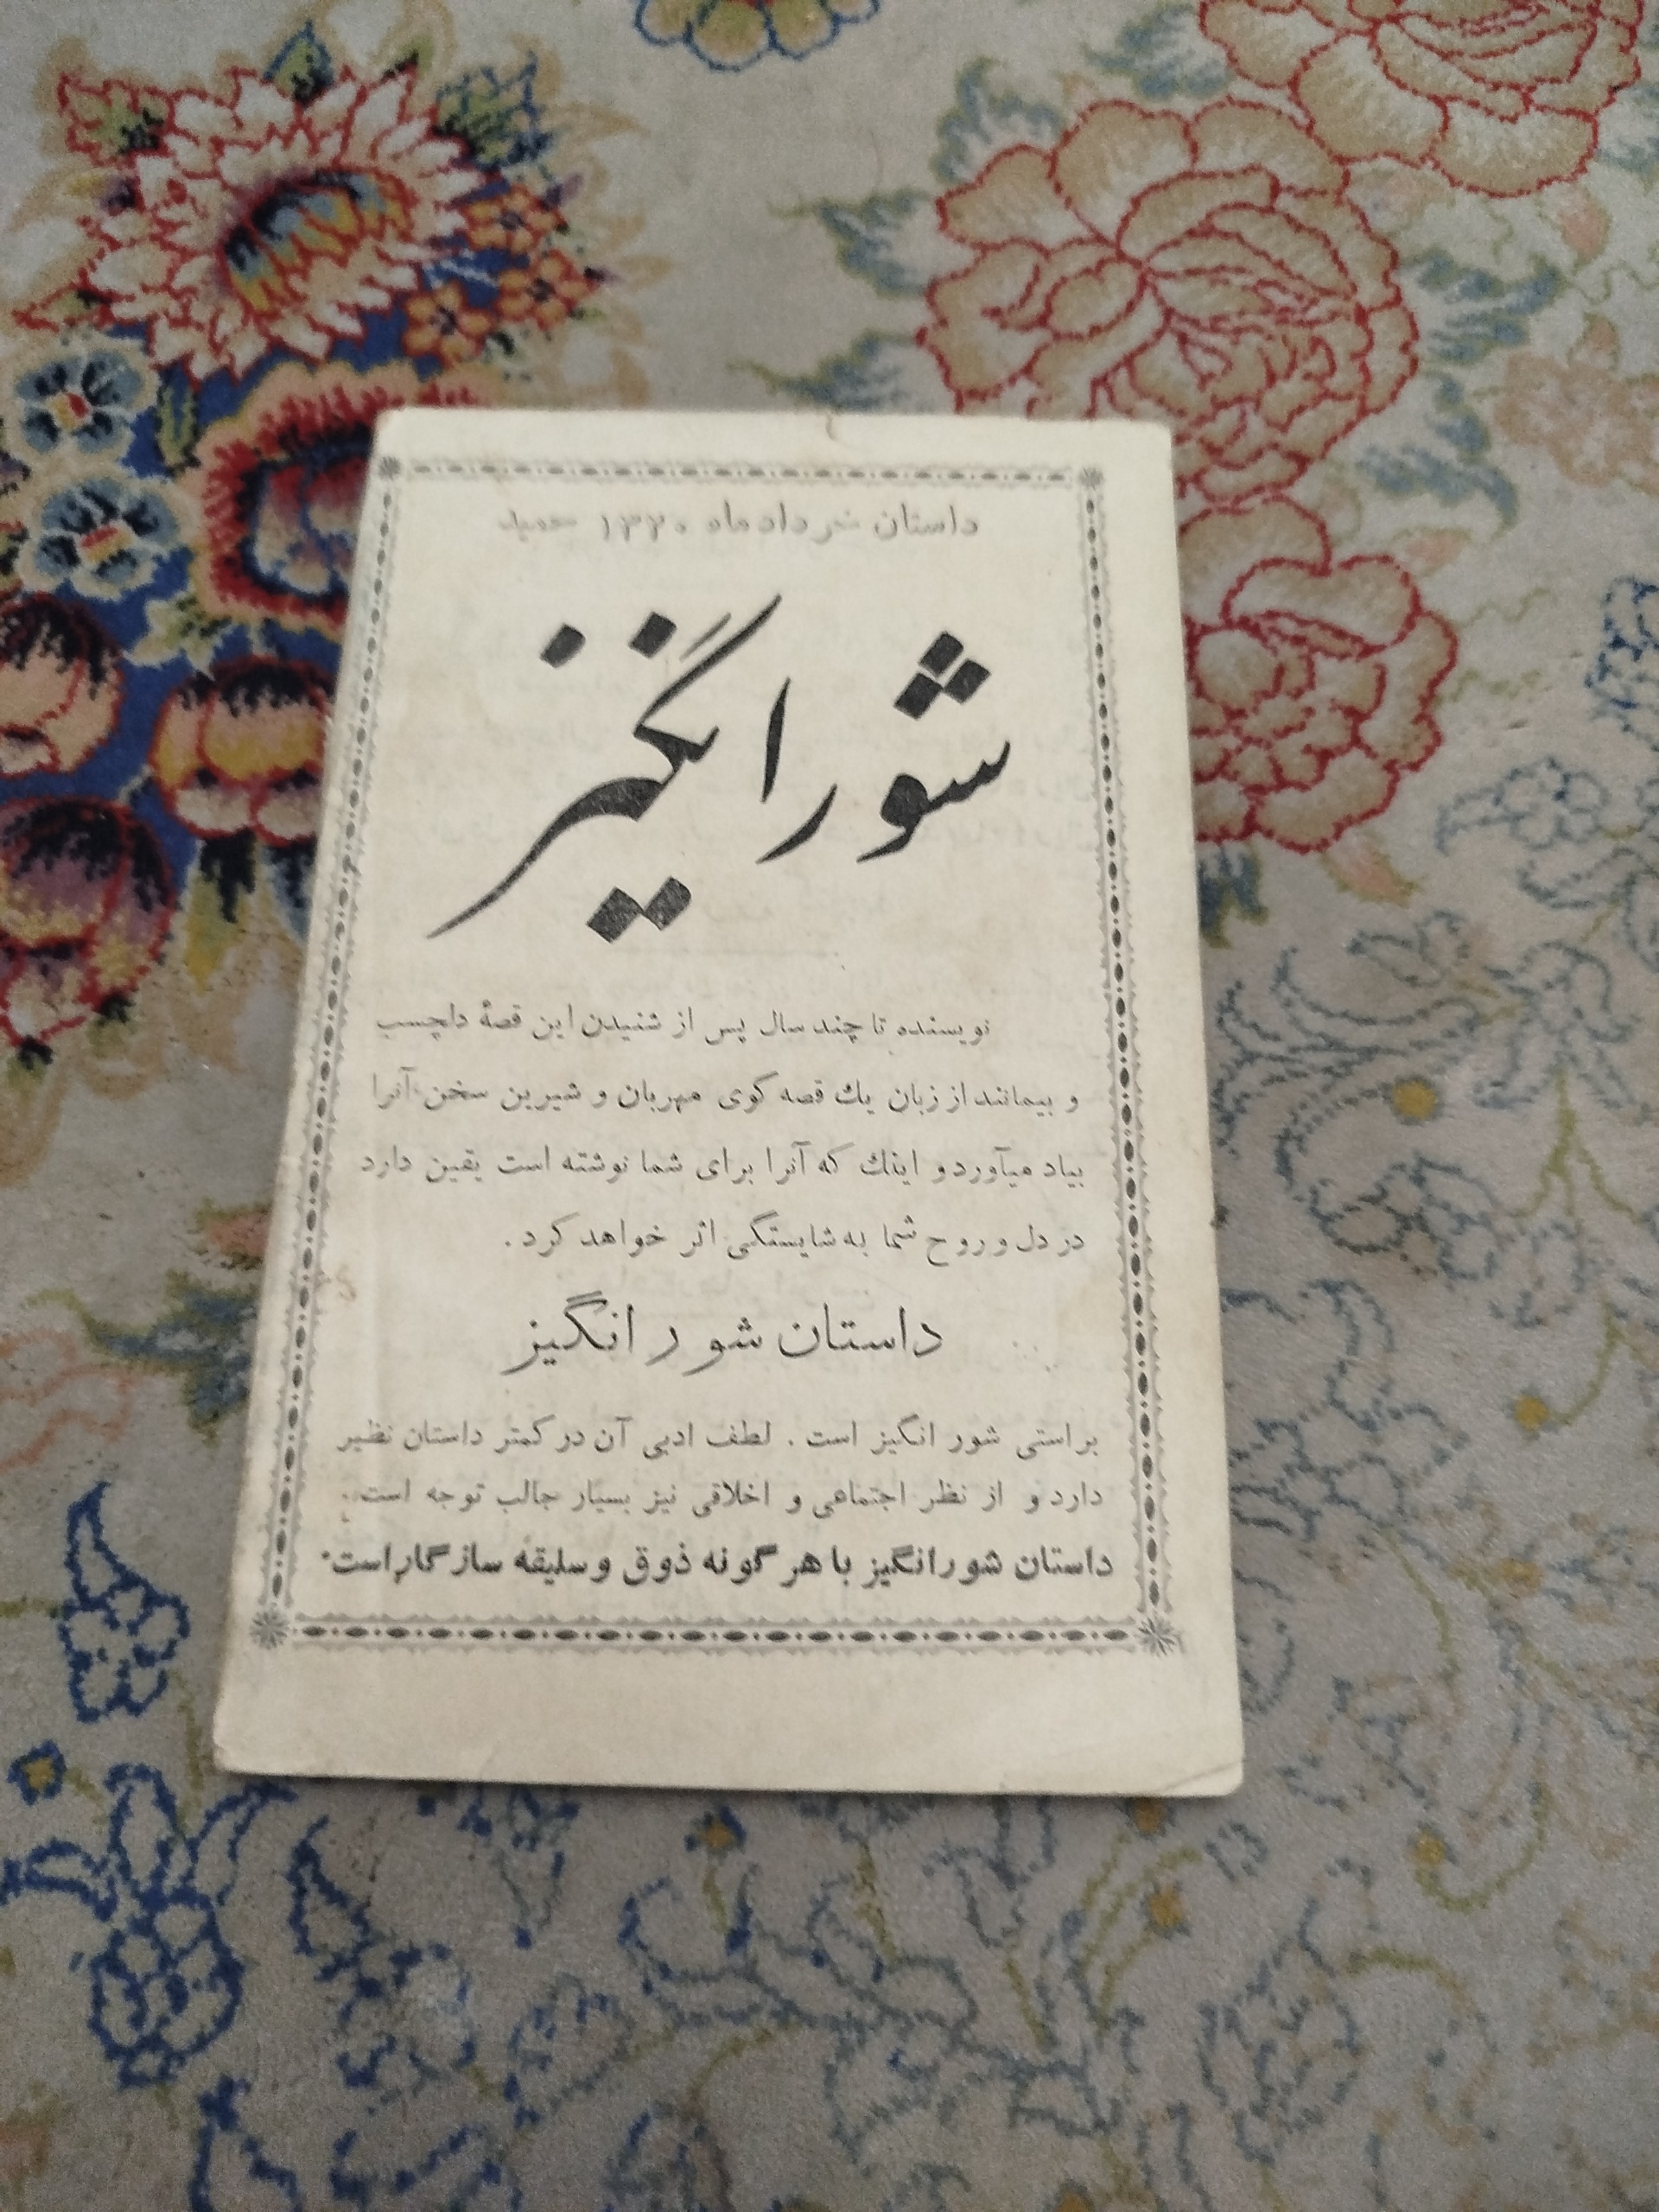 داستان خردادماه ۱۳۳۰ حمید
شورانگیز
نویسنده تا چند سال پس از شنیدن این قصهٔ دلچسب
و بیمانند از زبان یك قصه گوی مهربان و شیرین سخن آنرا
بیاد میآورد و اینك که آنرا برای شما نوشته است یقین دارد
در دل و روح شما به شایستگی اثر خواهد کرد .
داستان شورانگیز
براستی شور انگیز است . لطف ادبی آن در کمتر داستان نظیر
دارد و از نظر اجتماعی و اخلاقی نیز بسیار جالب توجه است .
داستان شورانگیز با هر گونه ذوق و سلیقه سازگار است .